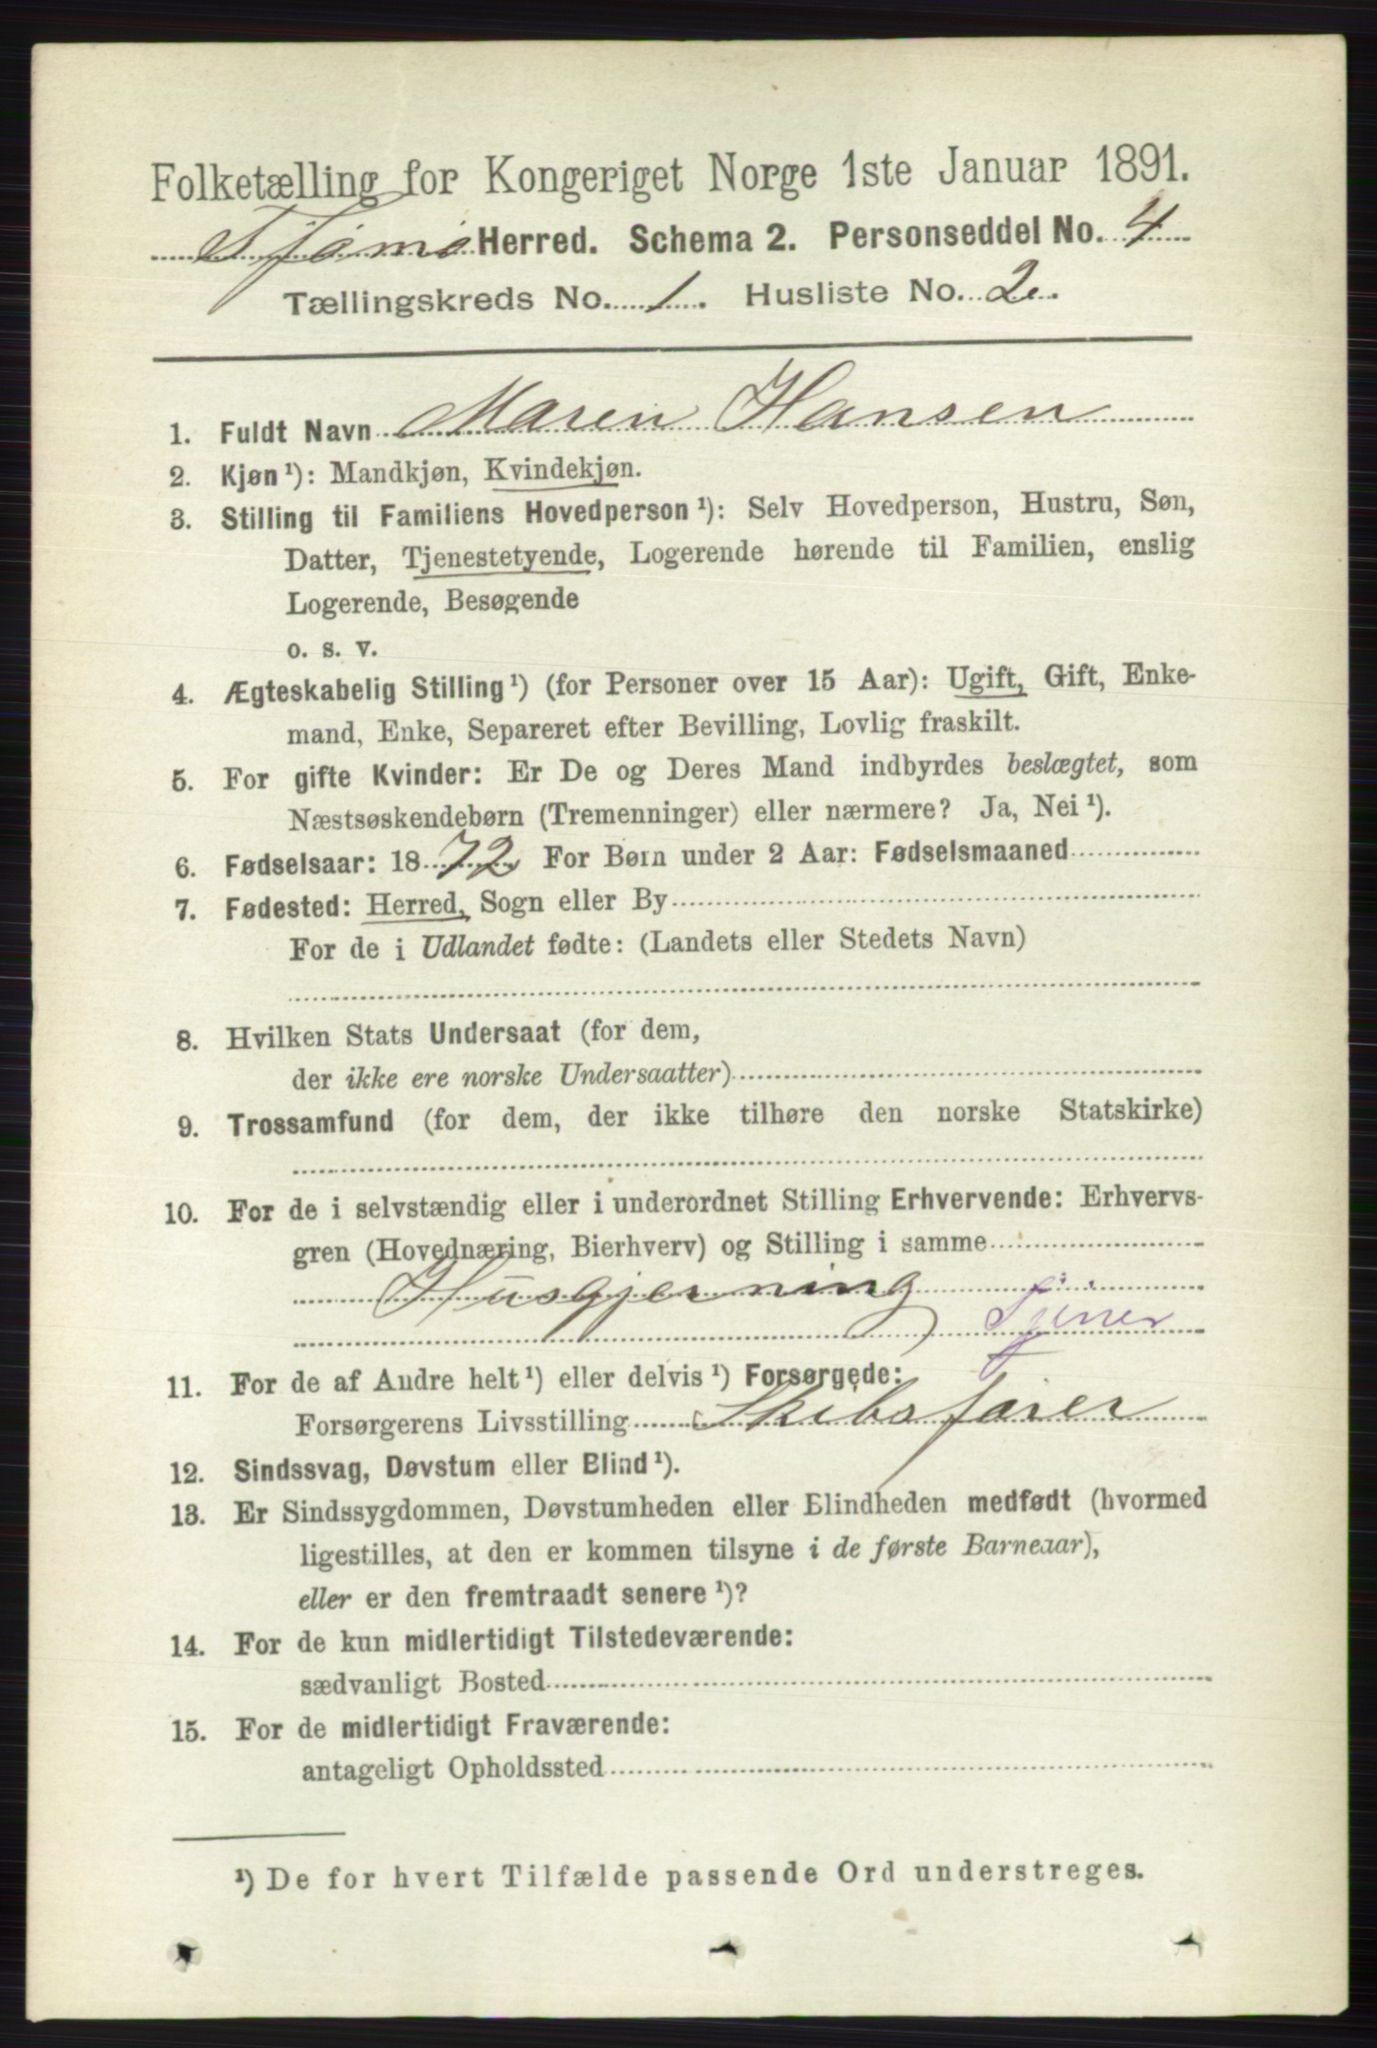 Folketælling for Kongeriget Norge 1ste Januar 1891.
Tjømø Herred. Schema 2. Personseddel No. 4
Tællingskreds No. 1. Husliste No. 2.
1. Fuldt Navn Maren Hansen
2. Kjøn ¹): Mandkjøn, Kvindekjøn.
3. Stilling til Familiens Hovedperson ¹): Selv Hovedperson, Hustru, Søn,
Datter, Tjenestetyende, Logerende hørende til Familien, enslig
Logerende, Besøgende
o. s. v.
4. Ægteskabelig Stilling ¹) (for Personer over 15 Aar): Ugift, Gift, Enke-
mand, Enke, Separeret efter Bevilling, Lovlig fraskilt.
5. For gifte Kvinder: Er De og Deres Mand indbyrdes beslægtet, som
Næstsøskendebørn (Tremenninger) eller nærmere? Ja, Nei ¹).
6. Fødselsaar: 1872. For Børn under 2 Aar: Fødselsmaaned
7. Fødested: Herred, Sogn eller By
For de i Udlandet fødte: (Landets eller Stedets Navn)
8. Hvilken Stats Undersaat (for dem,
der ikke ere norske Undersaatter)
9. Trossamfund (for dem, der ikke tilhøre den norske Statskirke)
10. For de i selvstændig eller i underordnet Stilling Erhvervende: Erhvervs-
gren (Hovednæring, Bierhverv) og Stilling i samme
Husgjerning
Tjener
11. For de af Andre helt ¹) eller delvis ¹) Forsørgede:
Forsørgerens Livsstilling Skibsfører
12. Sindssvag, Døvstum eller Blind ¹).
13. Er Sindssygdommen, Døvstumheden eller Blindheden medfødt (hvormed
ligestilles, at den er kommen tilsyne i de første Barneaar),
eller er den fremtraadt senere ¹)?
14. For de kun midlertidigt Tilstedeværende:
sædvanligt Bosted
15. For de midlertidigt Fraværende:
antageligt Opholdssted
¹) De for hvert Tilfælde passende Ord understreges.